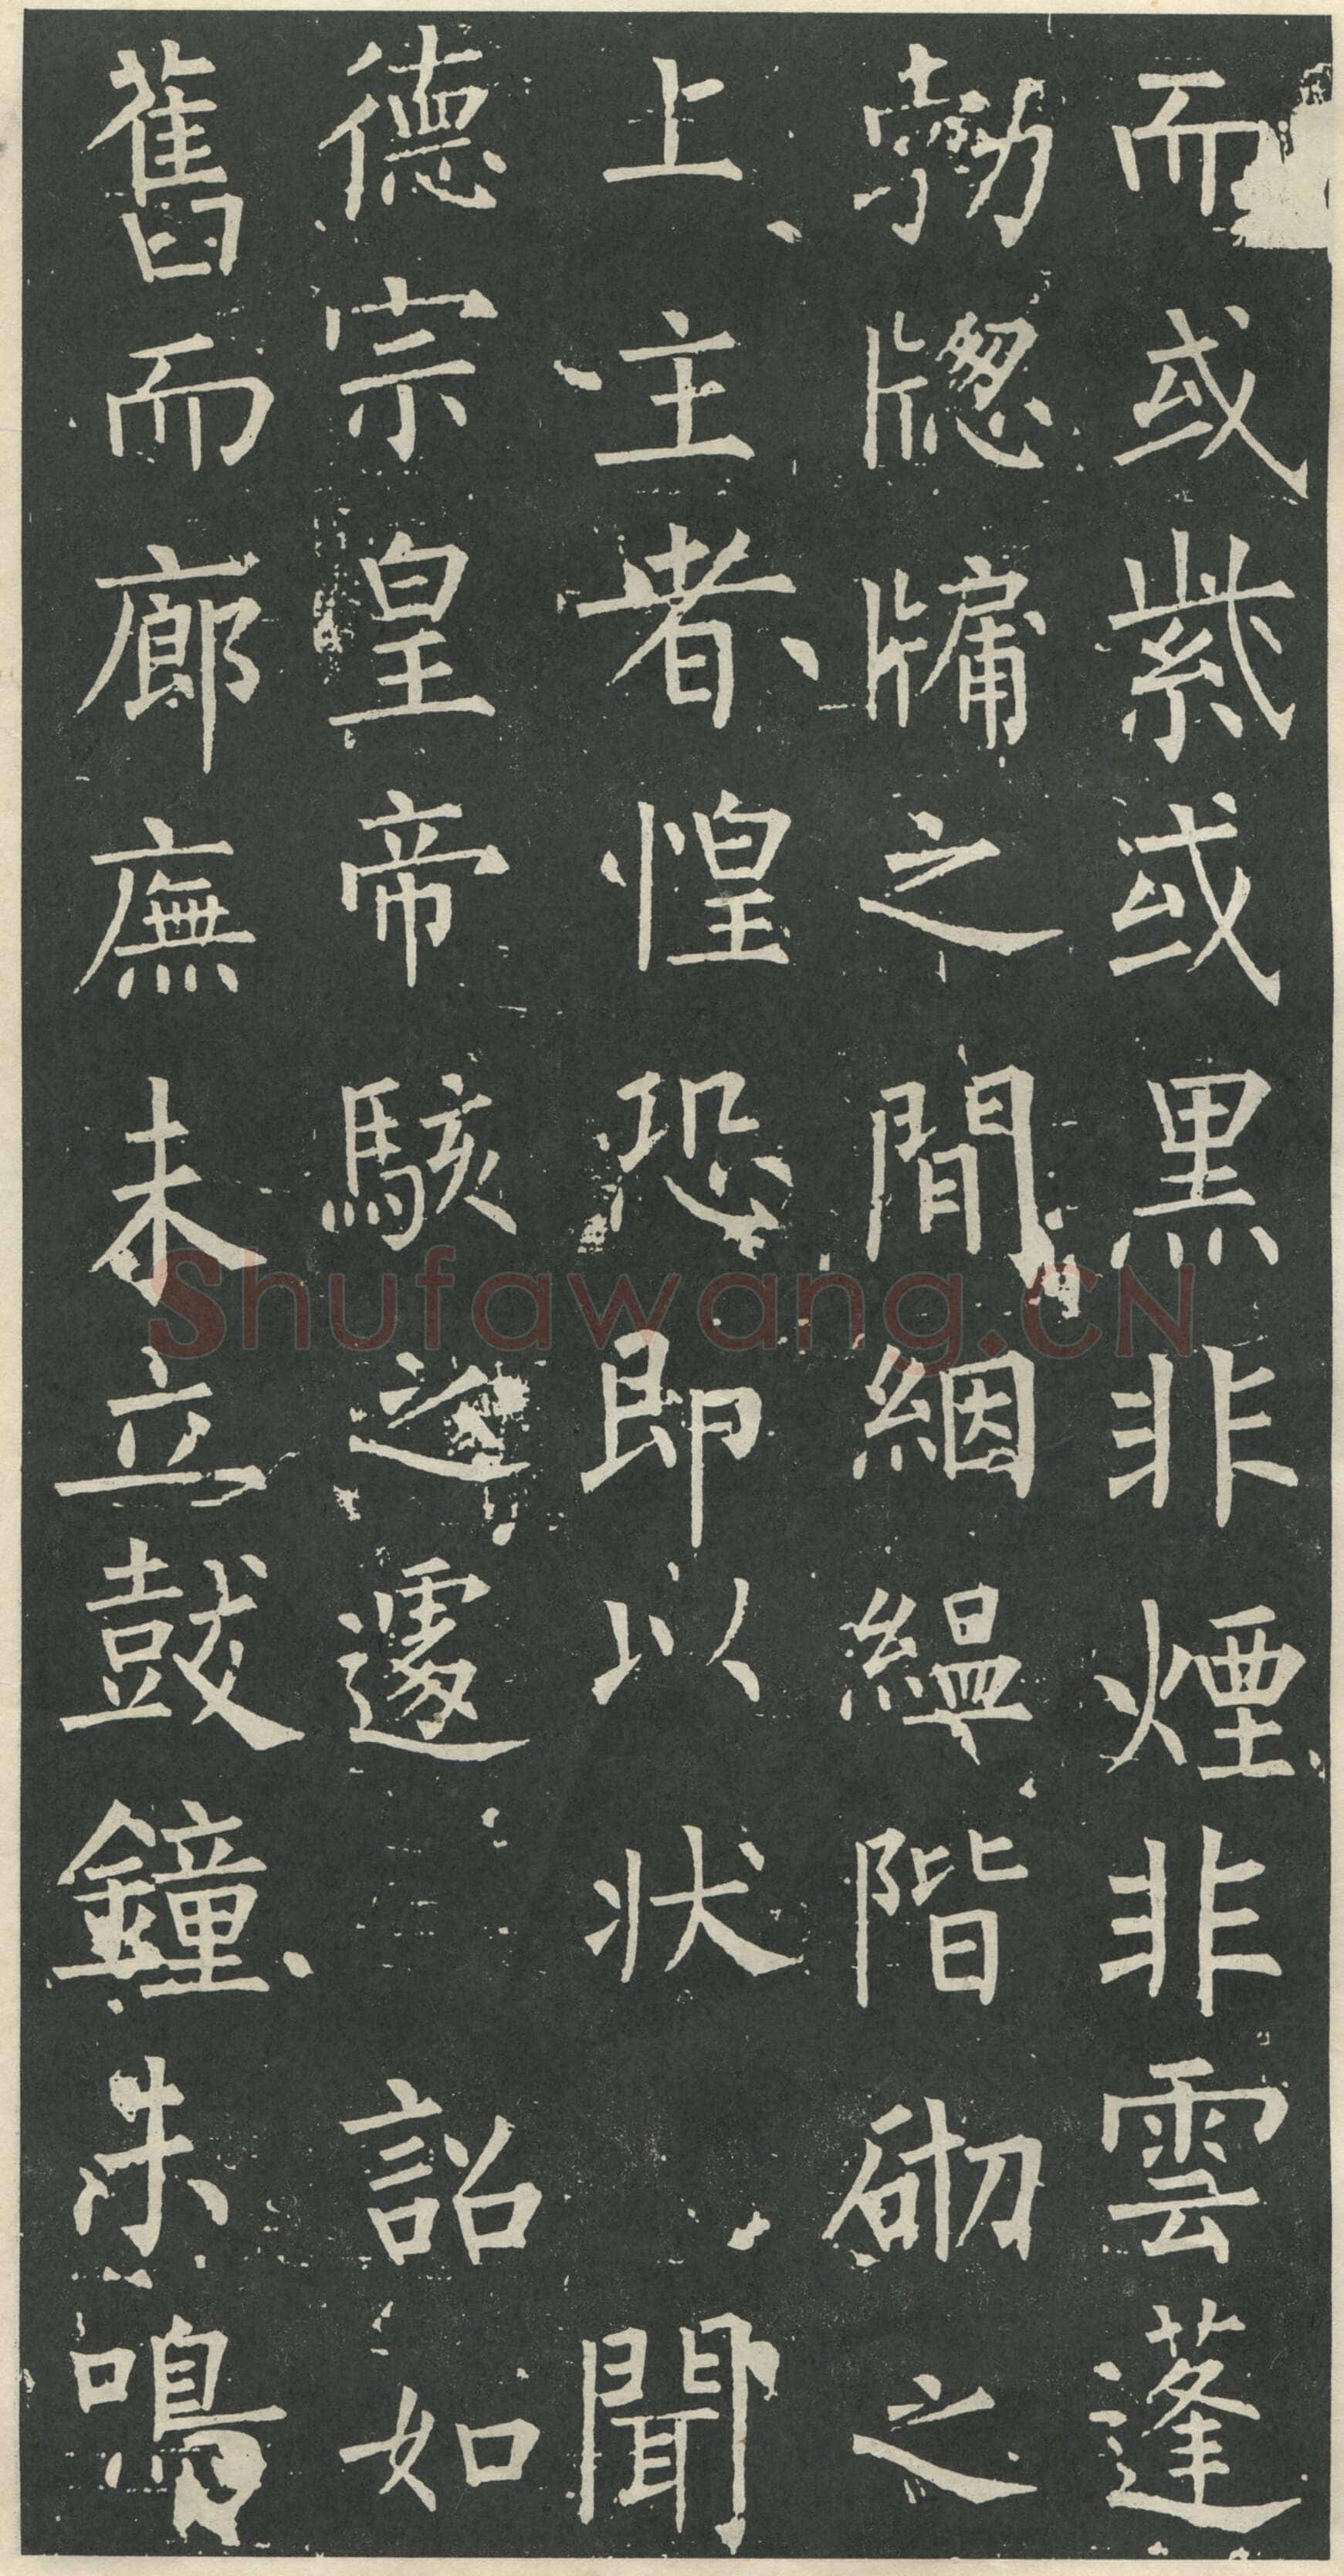 而或紫或黑非煙非雲蓬
勃牎牖之間絪縕階砌之
上主者惶恐即以状聞
德宗皇帝駭之遽詔如
舊而廊廡未立鼓鐘未鳴
Shufawang.CN